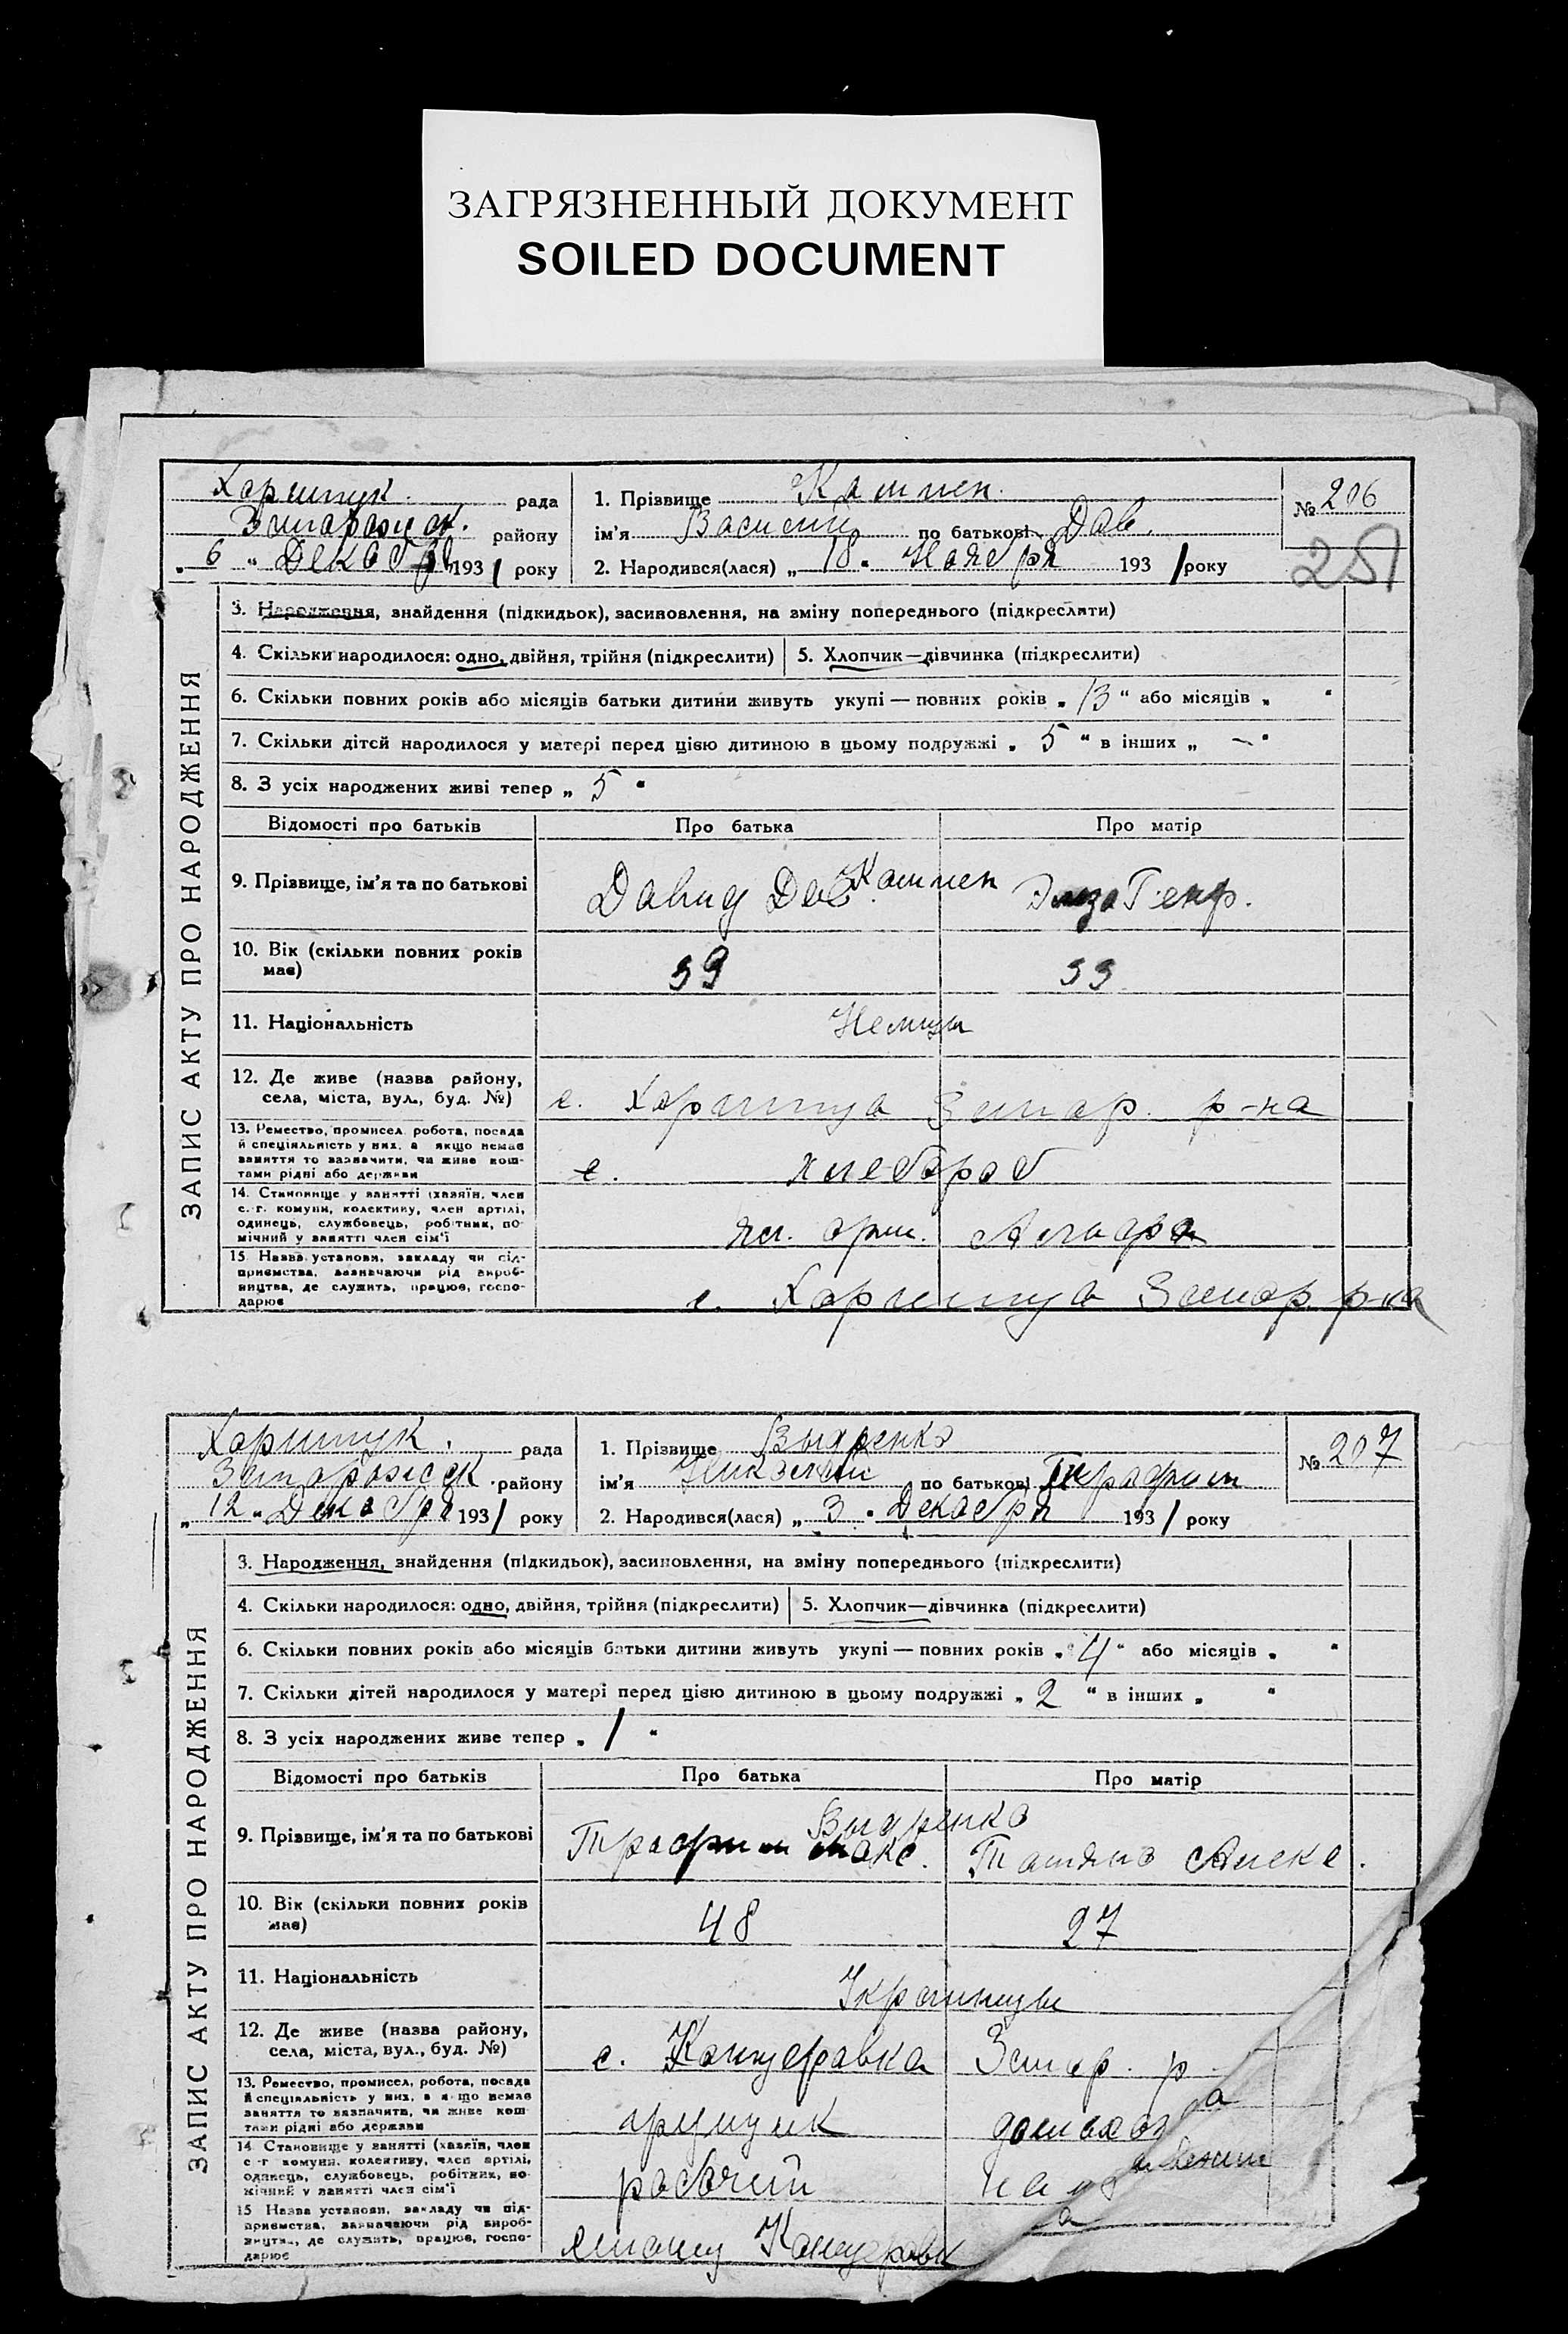 ЗАГРЯЗНЕННЫЙ ДОКУМЕНТ
SOILED DOCUMENT
ЗАПИС АКТУ ПРО НАРОДЖЕННЯ
рада
району
„ 6 " Декабря 1931 року
1. Прізвище
№ 206
ім'я Василий по батькові Дав.
2. Народився(лася) „ 18 " Ноября 1931 року
251
3. Народження, знайдення (підкидьок), засиновлення, на зміну попереднього (підкреслити)
4. Скільки народилося: одно, двійня, трійня (підкреслити)
5. Хлопчик—дівчинка (підкреслити)
6. Скільки повних років або місяців батьки дитини живуть укупі — повних років „ 13 " або місяців „ "
7. Скільки дітей народилося у матері перед цією дитиною в цьому подружжі „ 5 " в інших „ — "
8. З усіх народжених живі тепер „ 5 "
Відомості про батьків
Про батька
Про матір
9. Прізвище, ім'я та по батькові
Давид Дав.
Генр.
10. Вік (скільки повних років
має)
39
11. Національність
Немцы
12. Де живе (назва району,
села, міста, вул., буд. №)
с. Хортица Запор. р-на
13. Ремество, промисел, робота, посада
й спеціяльність у них, а якщо немає
заняття то зазначити, чи живе кош-
тами рідні або держави
хлебороб
14. Становище у занятті (хазяїн, член
с.-г. комуни, колективу, член артілі,
одинець, службовець, робітник, по-
мічний у занятті член сім'ї
15. Назва установи, закладу чи під-
приємства, зазначаючи рід вироб-
ництва, де служить, працює, госпо-
дарює
с. Хортица Запор. р-на
ЗАПИС АКТУ ПРО НАРОДЖЕННЯ
рада
району
„ 12 " Декабря 1931 року
1. Прізвище Выдренко
№ 207
ім'я Николай по батькові
2. Народився(лася) „ 3 " Декабря 1931 року
3. Народження, знайдення (підкидьок), засиновлення, на зміну попереднього (підкреслити)
4. Скільки народилося: одно, двійня, трійня (підкреслити)
5. Хлопчик—дівчинка (підкреслити)
6. Скільки повних років або місяців батьки дитини живуть укупі — повних років „ 4 " або місяців „ "
7. Скільки дітей народилося у матері перед цією дитиною в цьому подружжі „ 2 " в інших „ "
8. З усіх народжених живе тепер „ 1 "
Відомості про батьків
Про батька
Про матір
Выдренко
9. Прізвище, ім'я та по батькові
10. Вік (скільки повних років
має)
48
27
11. Національність
Украинцы
12. Де живе (назва району,
села, міста, вул., буд. №)
с. Канцеровка Запор. р
13. Ремество, промисел, робота, посада
й спеціяльність у них, а якщо немає
заняття то зазначити, чи живе кош-
тами рідні або держави
грузчик
домохоз
14. Становище у занятті (хазяїн, член
с.-г. комуни, колективу, член артілі,
одинець, службовець, робітник, по-
мічний у занятті член сім'ї
рабочий
15. Назва установи, закладу чи під-
приємства, зазначаючи рід вироб-
ництва, де служить, працює, госпо-
дарює